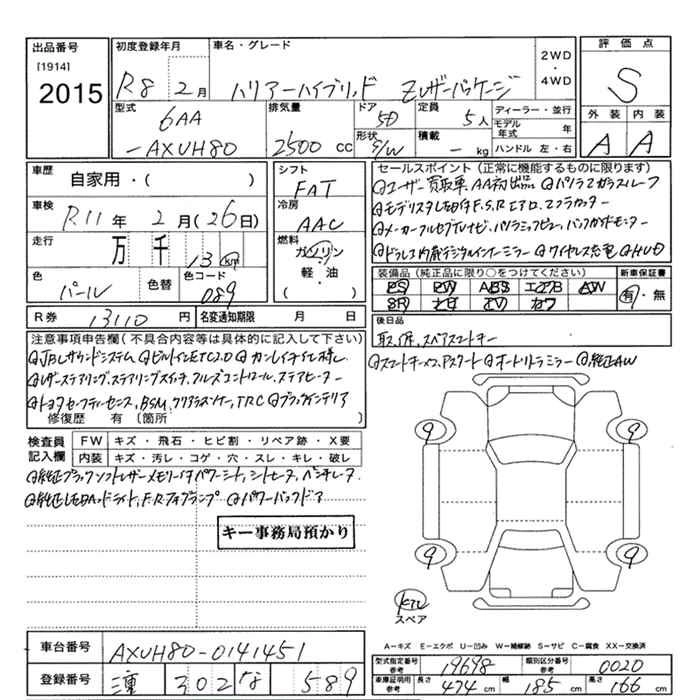 出品番号
[1914]
2015
初度登録年月
R8 2月
車名・グレード
ハリアーハイブリッド Zレザーパッケージ
2WD
・
4WD
評価点
S
外装 内装
A A
型式
6AA
-AXUH80
排気量
2500 CC
ドア
5D
形状
S/W
定員
5人
積載
- kg
ディーラー・並行
モデル年式 年
ハンドル 左・右
車歴
自家用・( )
車検
R11年 2月(26日)
走行
万 千 13 km
色
パール
色替
色コード
089
シフト
FAT
冷房
AAC
燃料
ガソリン
・
軽・油
( )
セールスポイント(正常に機能するものに限ります)
@ユーザー買取車、AA初出品 @パノラマガラスルーフ
@モデリスタLED付F.S.Rエアロ、マフラカッター
@メーカーフルセグTVナビ、パノラミックビュー、バックガイドモニター
@ドラレコ内蔵デジタルインナーミラー @ワイヤレス充電 @HUD
装備品(純正品に限り○をつけてください)
PS PW ABS エアB AW
SR ナビ TV カワ
新車保証書
有・無
後日品
取、保、スペアスマートキー
R券 13110円
名変通知期限 月 日
注意事項申告欄(不具合内容等は具体的に記入して下さい)
@JBLサウンドシステム @ビルトインETC2.0 @カンレイチイキ仕様
@レザーステアリング、ステアリングスイッチ、クルーズコントロール、ステアヒーター
@トヨタセーフティーセンス、BSM、クリアランスソナー、TRC @ブラックインテリア
修復歴 有 〔箇所
@スマートキーx2、Pスタート @オートリトラミラー @純正AW
検査員記入欄
FW キズ・飛石・ヒビ割・リペア跡・X要
内装 キズ・汚レ・コゲ・穴・スレ・キレ・破レ
@純正ブラックソフトレザーメモリー付パワーシート、シートヒーター、ベンチレーター
@純正LEDヘッドライト、F.Rフォグランプ @パワーバックドア
キー事務局預かり
9 9
9 9
キズ
スペア
A－キズ E－エクボ U－凹み W－補修跡 S－サビ C－腐食 XX－交換済
車台番号 AXUH80-0141451
登録番号 三重 302 な 589
型式指定番号 参考 19698
類別区分番号 参考 0020
車庫証明用 参考
長さ 474cm 幅 185cm 高さ 166cm